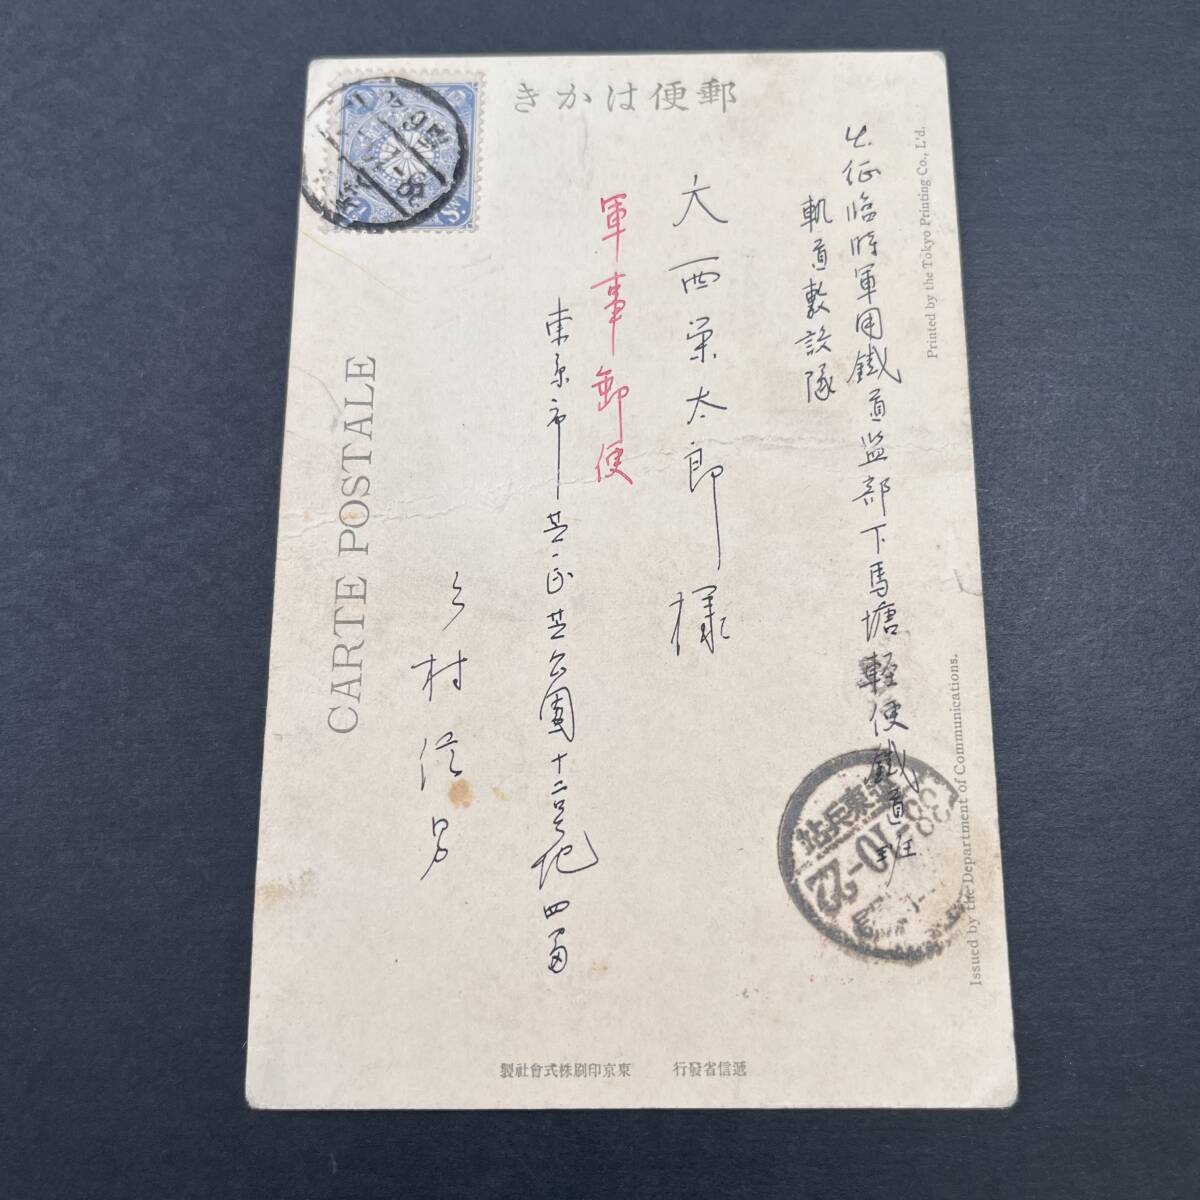 郵便はかき
出征臨時軍用鐵道監部下馬塘輕便鐵道班
軌道敷設隊
大西栄太郎様
軍事郵便
東京市芝区芝公園十二号地四番
村信男
CARTE POSTALE
Printed by the Tokyo Printing Co., L'd.
Issued by the Department of Communications.
東兵站
38-10-22
遞信省發行 東京印刷株式會社製